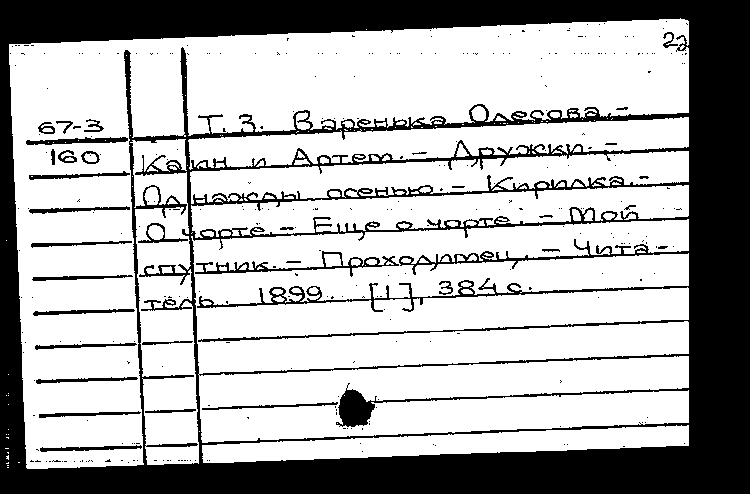 22
67-3 Т. 3. Варенька Олесова.-
160 Каин и Артем.- Дружки.-
Однажды осенью.- Кирилка.-
О чорте.- Еще о чорте.- Мой
спутник.- Проходимец.- Чита-
тель. 1899. [1], 384 с.